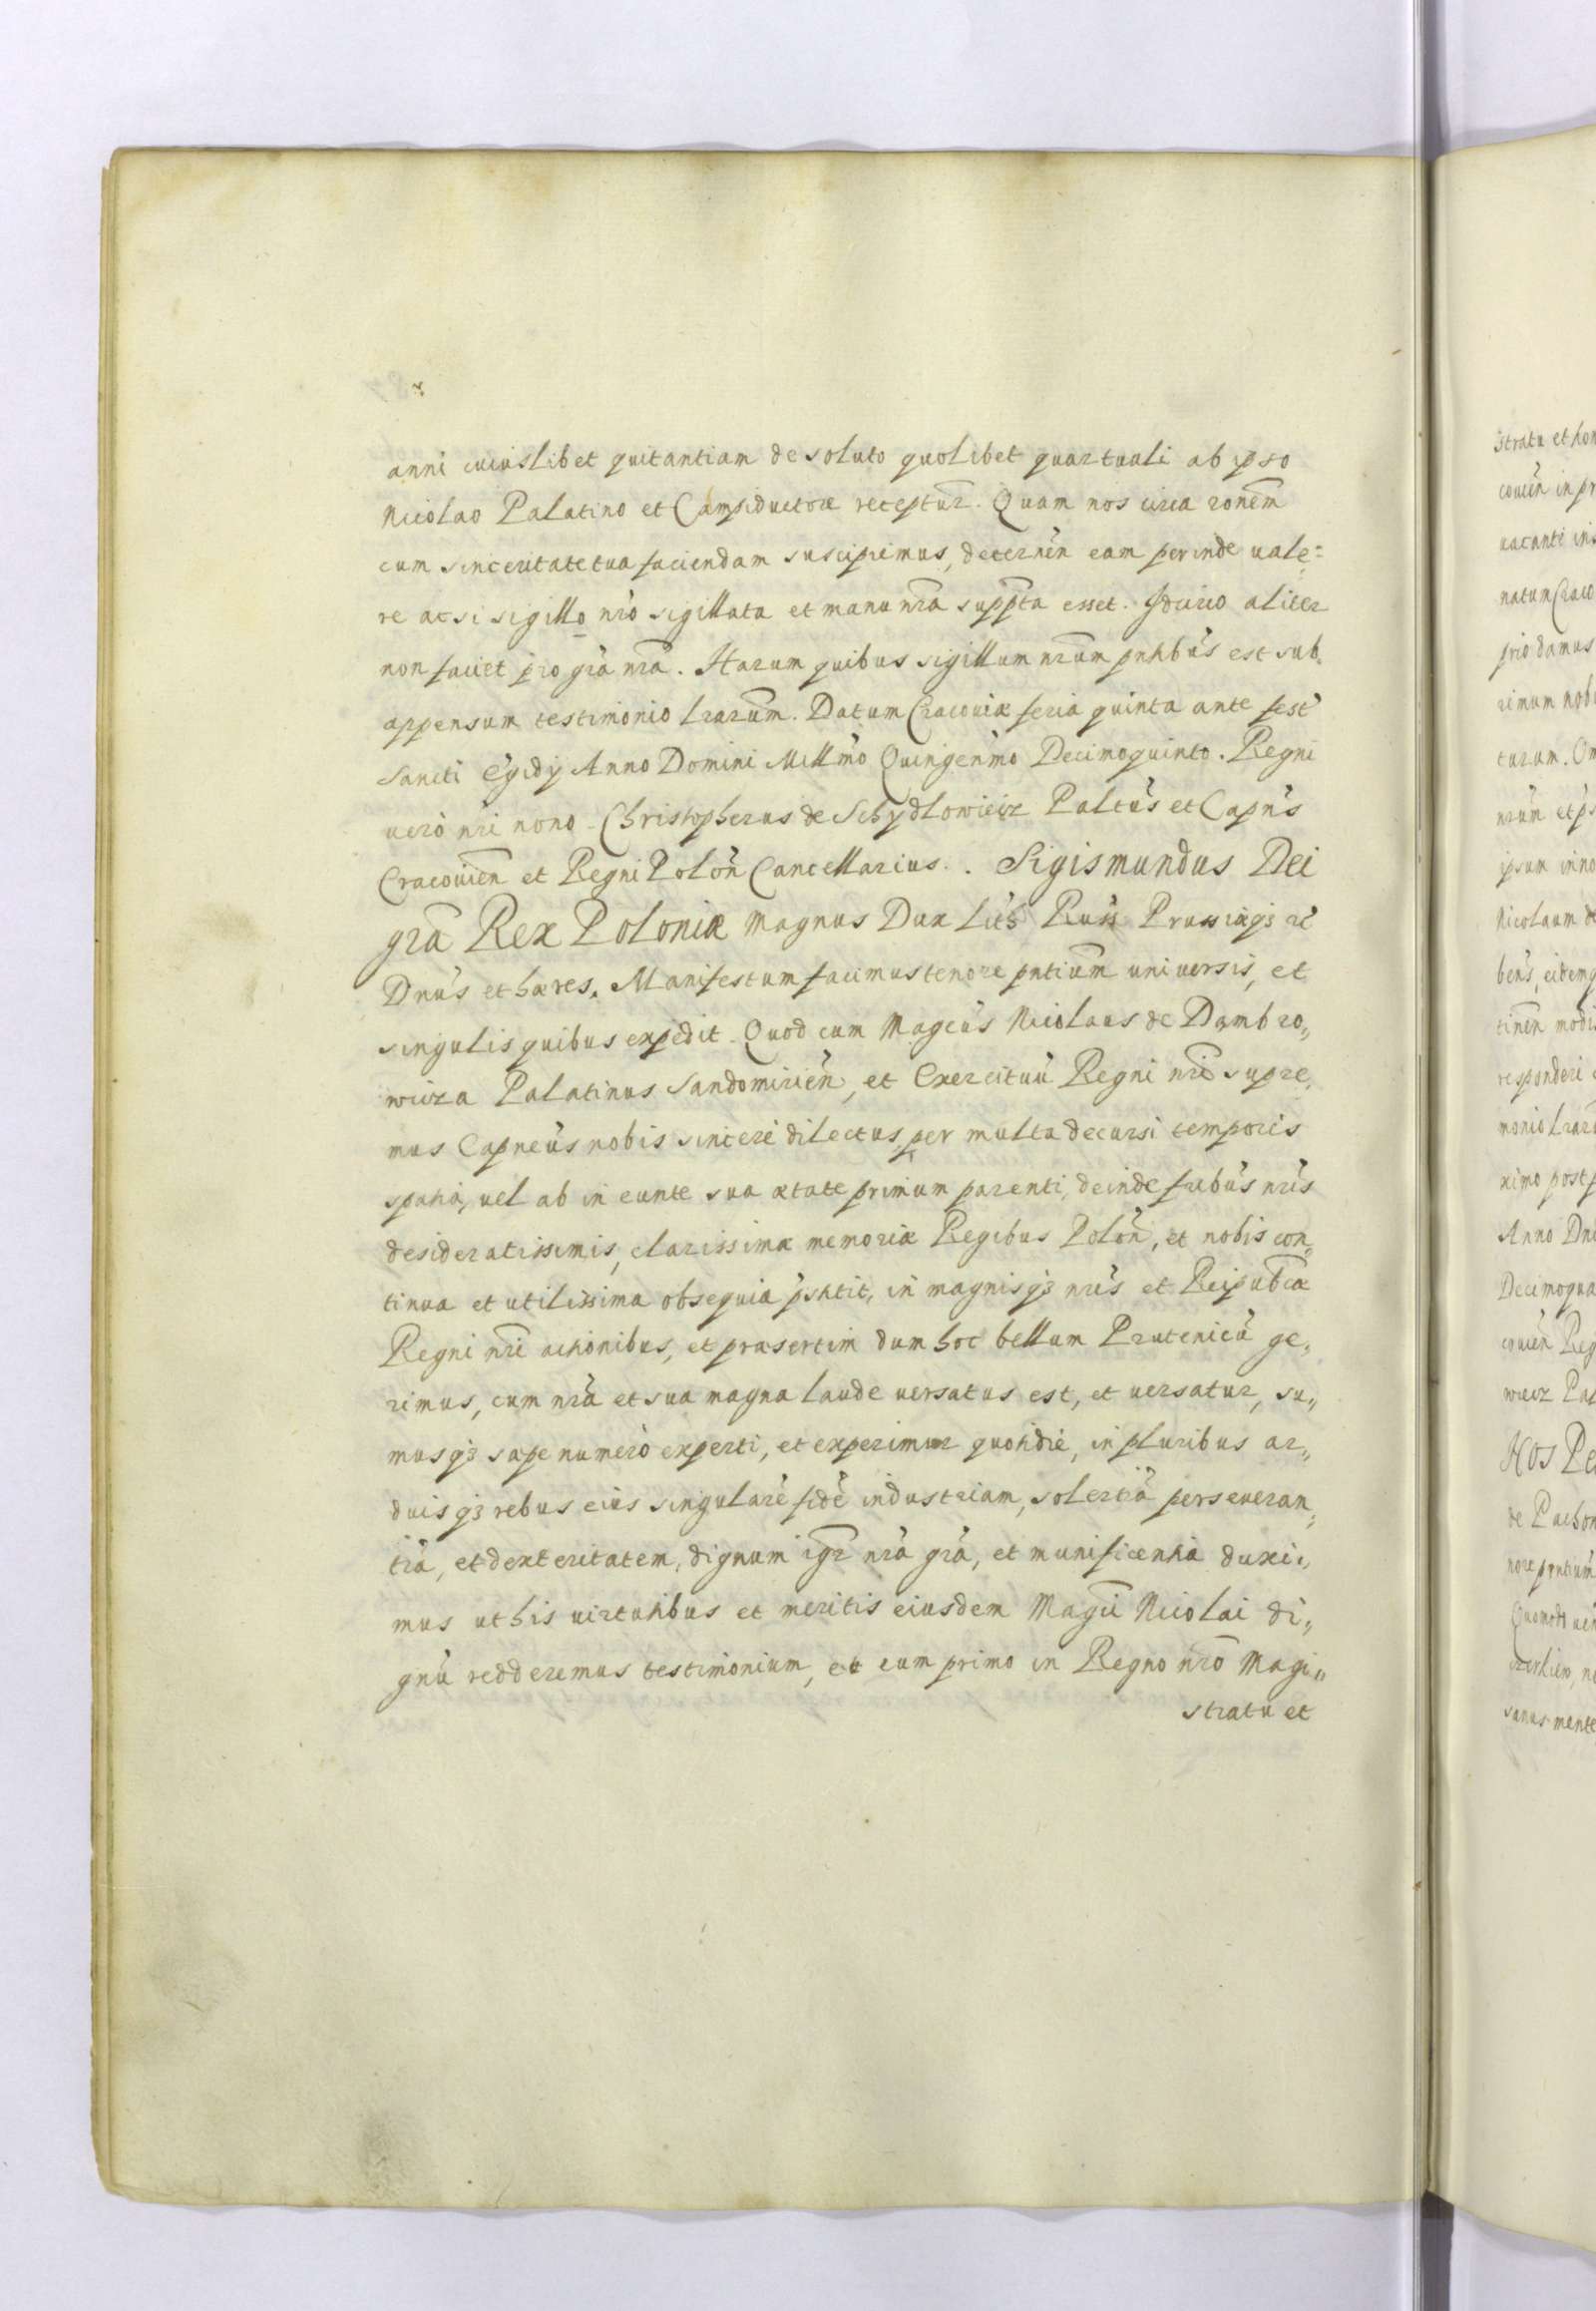 anni cuiuslibet quitantiam de soluto quolibet quartuali ab ipso
Nicolao Palatino et Campiductore receptur̃. Quam nos circa ronem̃
cum sinceritate tua faciendam suscipiemus, decernen̈ eam perinde uale=
re ac si sigillo nr̃o sigillata et manu nr̃a supp̃ta esset. Idcirco aliter
non faciet pro gr̃a nr̃a. Harum quibus sigillum nr̃um pñtibus est sub,
appensum testimonio lrarum̃. Datum Cracouiæ feria quinta ante fest̃
Sancti Egidij Anno Domini Millm̃o Quingenm̃o Decimoquinto. Regni
uerò nr̃i nono. Christopherus de Schydlowiecz Paltũs et Capñs
Cracouieñ et Regni Poloñ Cancellarius. . Sigismundus Dei
gr̃a Rex Poloniæ Magnus Dux Lith̃ Russ Prussiæq3 ec̃
Dnũs et hæres. Manifestum facimus tenore pntium̃ uniuersis, et
singulis quibus expedit. Quod cum Magcũs Nicolaus de Dambro,,
wicza Palatinus Sandomirieñ, et Exercituũ Regni nr̃i supre,
mus Capneũs nobis sincere dilectus per multa decursi temporis
spatia, uel ab in eunte sua ætate primum parenti, deinde fr̃ibus nr̃is
desideratissimis, clarissimæ memoriæ Regibus Poloñ, et nobis con,,
tinua et utilissima obsequia p̃stitit, in magnisq3 nr̃is et Reipub̃cæ
Regni nr̃i actionibus, et præsertim dum hoc bellum Prutenicũ ge,
rimus, cum nr̃a et sua magna laude uersatus est, et uersatur, su,,
musq3 sæpe numerò experti, et experimur quotidiè, in pluribus ar,,
duisq3 rebus eius singularẽ fidẽ industriam, solertiã perseueran,,
tiã, et dexteritatem, dignum igr̃ nr̃a gr̃a, et munificentia duxi,,
mus ut his uirtutibus et meritis eiusdem Magcĩ Nicolai di,,
gnũ redderemus testimonium, et eum primo in Regno nr̃o Magi,,
stratu et